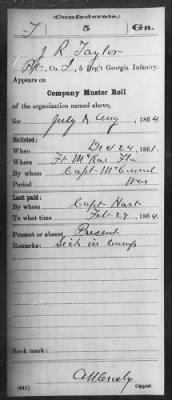 (Confederate.)
T 5 Ga.
J R Taylor
Pvt, Co. I, 5 Reg't Georgia Infantry.
Appears on
Company Muster Roll
of the organization named above,
for July & Aug, 1864.
Enlisted:
When Dec 24, 1861.
Where Ft McRae Fla
By whom Capt McConnel
Period War
Last paid:
By whom Capt Hart
To what time Feb 29, 1864.
Present or absent Present
Remarks: Sick in Camp
Book mark:
(642) Copyist.